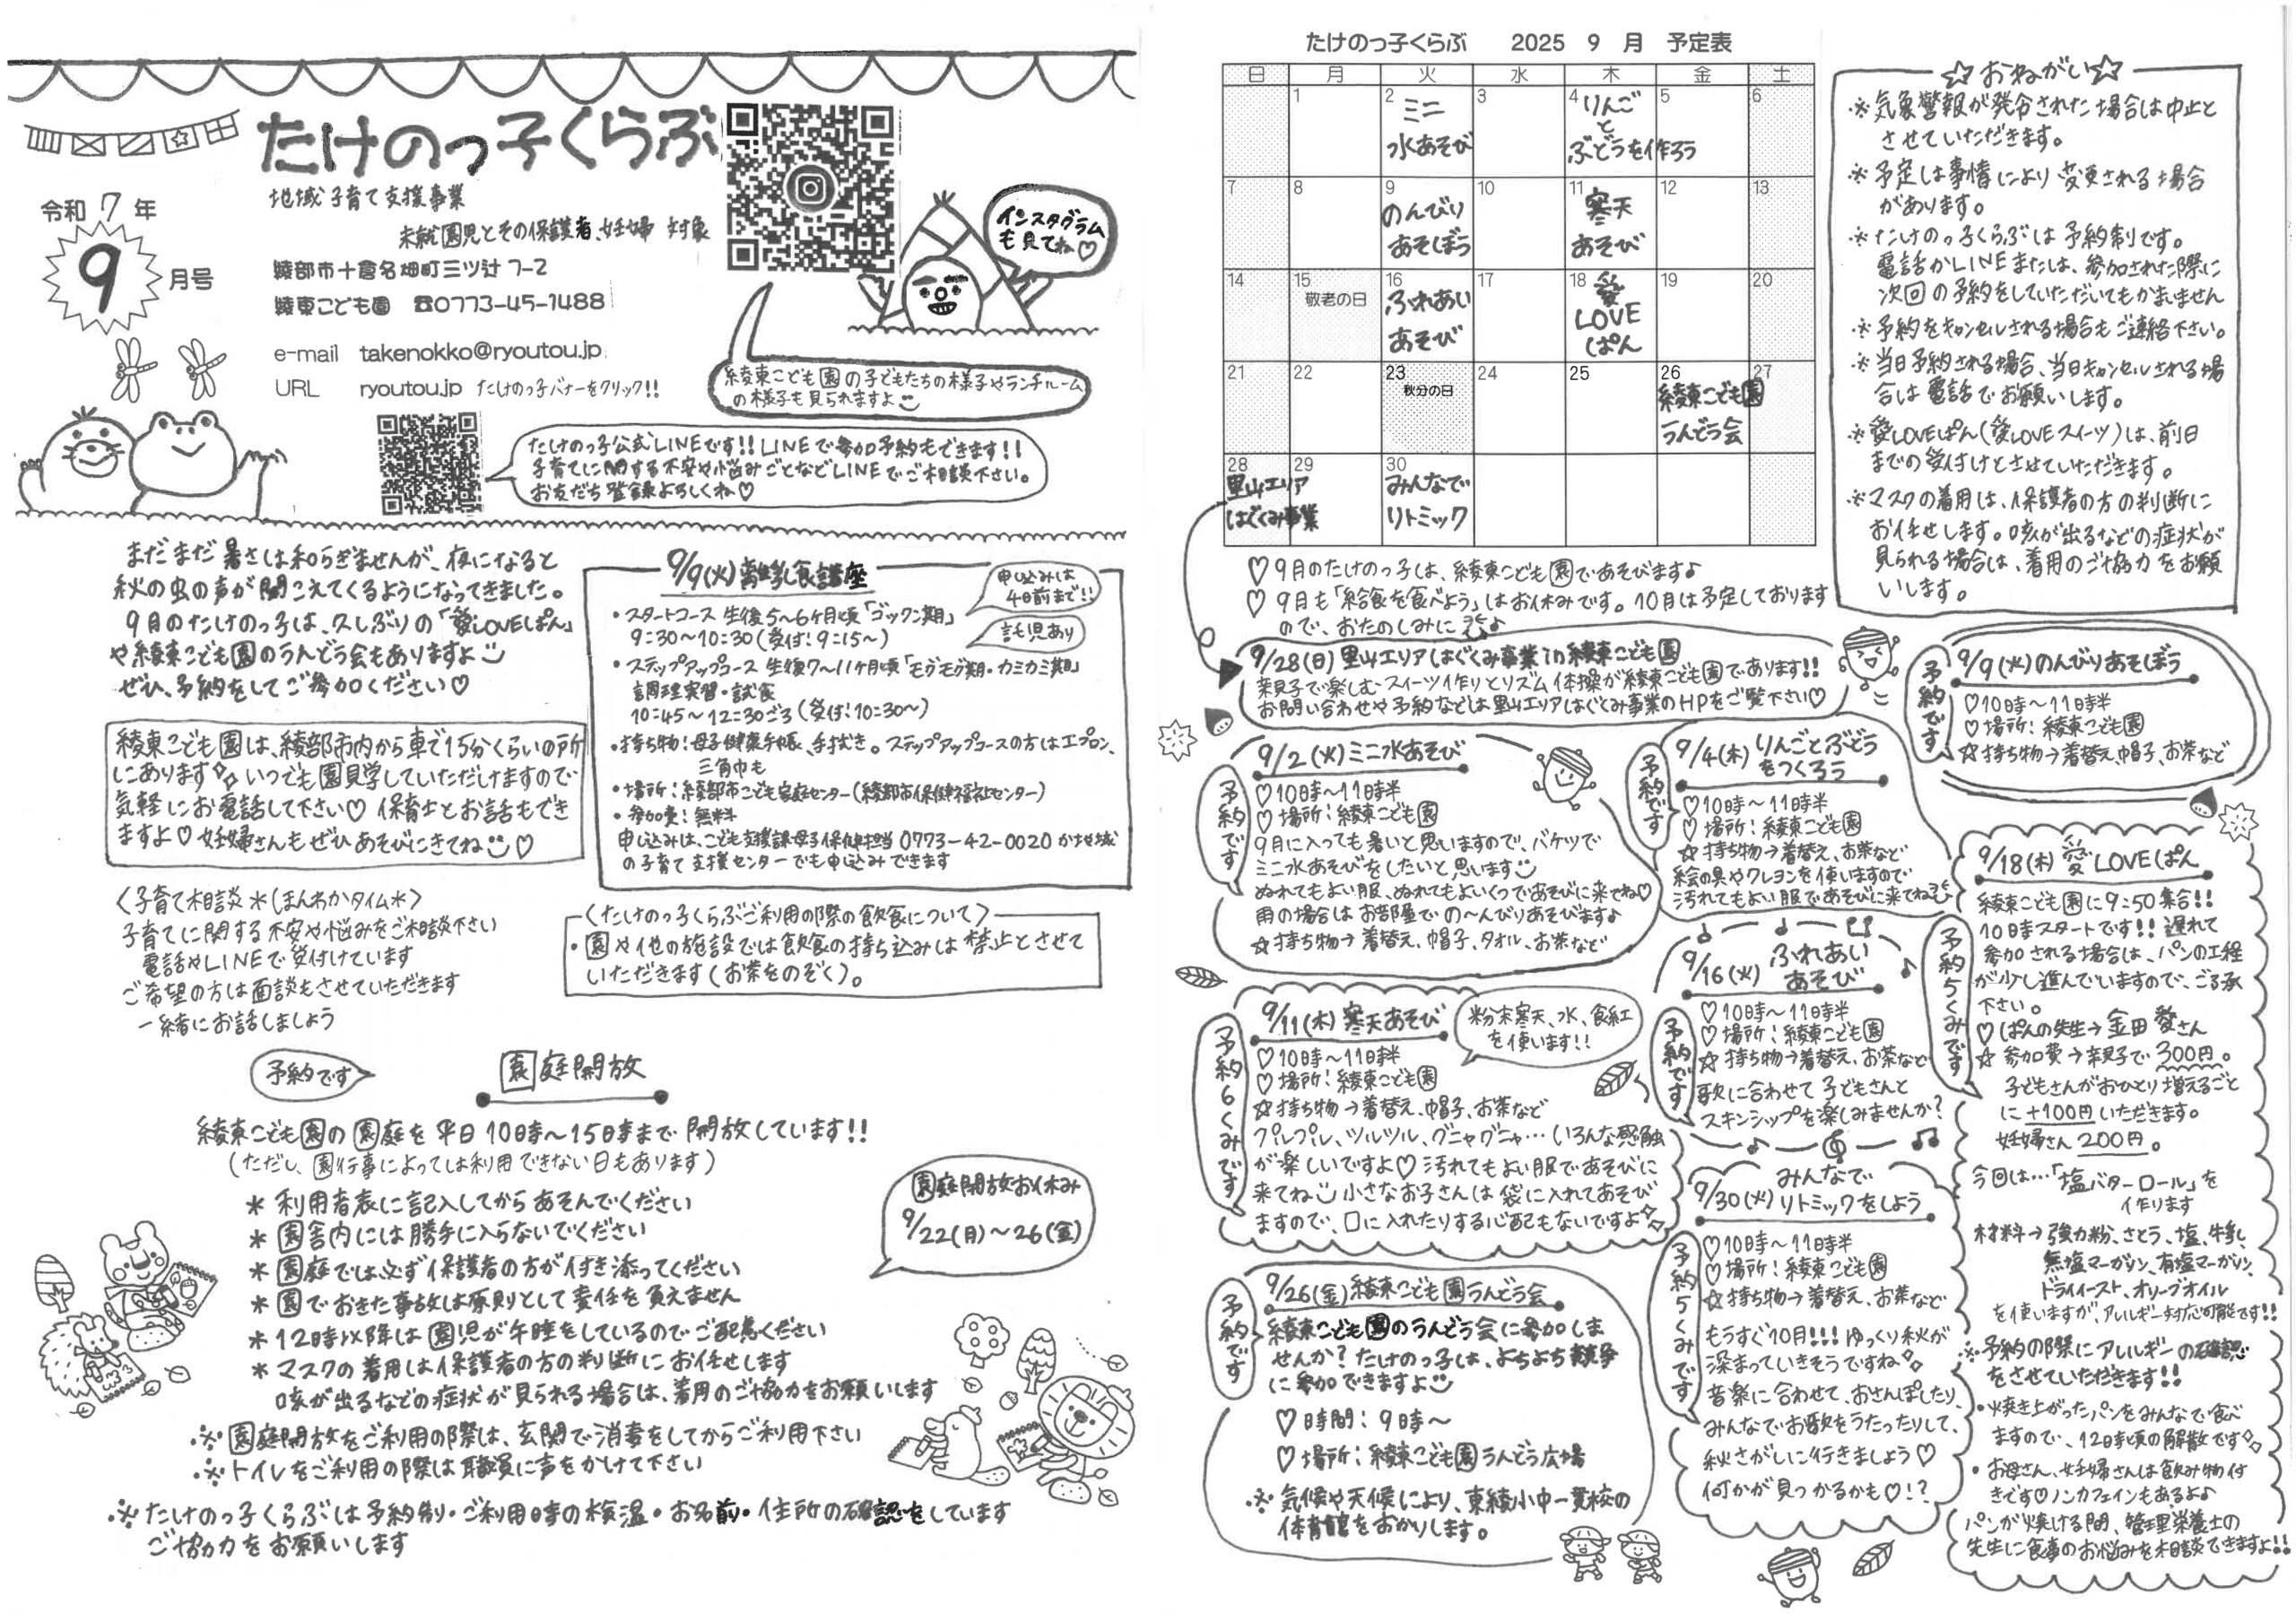 たけのっ子くらぶ
令和7年
9月号
地域子育て支援事業
未就園児とその保護者、妊婦 対象
綾部市十倉名畑町三ツ辻7-2
綾東こども園 ☎0773-45-1488
e-mail takenokko@ryoutou.jp
URL ryoutou.jp たけのっ子バナーをクリック!!
インスタグラム
も見てね♡
綾東こども園の子どもたちの様子やランチルーム
の様子も見られますよ
たけのっ子公式LINEです!! LINEで参加予約もできます!!
子育てに関する不安や悩みごとなどLINEでご相談下さい。
お友だち登録よろしくね♡
まだまだ暑さは和らぎませんが、夜になると
秋の虫の声が聞こえてくるようになってきました。
9月のたけのっ子は、久しぶりの「愛LOVEぱん」
や綾東こども園のうんどう会もありますよ
ぜひ、予約をしてご参加ください♡
綾東こども園は、綾部市内から車で15分くらいの所
にあります いつでも園見学していただけますので
気軽にお電話して下さい♡ 保育士とお話もでき
ますよ♡ 妊婦さんもぜひあそびにきてね ♡
〈子育て相談*ほんわかタイム*〉
子育てに関する不安や悩みをご相談下さい
電話やLINEで受付けています
ご希望の方は面談もさせていただきます
一緒にお話しましょう
9/9(火)離乳食講座
申し込みは
4日前まで!!
託児あり
・スタートコース 生後5〜6ヶ月頃「ゴックン期」
9:30〜10:30(受付:9:15〜)
・ステップアップコース 生後7〜11ヶ月頃「モグモグ期・カミカミ期」
調理実習・試食
10:45〜12:30ごろ(受付:10:30〜)
・持ち物:母子健康手帳、手拭き。ステップアップコースの方はエプロン、
三角巾も
・場所:綾部市こども家庭センター(綾部市保健福祉センター)
・参加費:無料
申し込みは、こども支援課母子保健担当 0773-42-0020 か地域
の子育て支援センターでも申し込みできます
〈たけのっ子くらぶご利用の際の飲食について〉
・園や他の施設では飲食の持ち込みは禁止とさせて
いただきます(お茶をのぞく)。
予約です
園庭開放
綾東こども園の園庭を平日10時〜15時まで開放しています!!
(ただし、園行事によっては利用できない日もあります)
* 利用者表に記入してからあそんでください
* 園舎内には勝手に入らないでください
* 園庭では必ず保護者の方が付き添ってください
* 園でおきた事故は原則として責任を負えません
* 12時以降は園児が午睡をしているのでご配慮ください
* マスクの着用は保護者の方の判断にお任せします
咳が出るなどの症状が見られる場合は、着用のご協力をお願いします
園庭開放お休み
9/22(月)〜26(金)
※園庭開放をご利用の際は、玄関で消毒をしてからご利用下さい
※トイレをご利用の際は職員に声をかけて下さい
※たけのっ子くらぶは予約制・ご利用時の検温・お名前・住所の確認をしています
ご協力をお願いします
たけのっ子くらぶ 2025 9 月 予定表
日 月 火 水 木 金 土
1 2 3 4 5 6
ミニ
水あそび
りんご
と
ぶどうを作ろう
7 8 9 10 11 12 13
のんびり
あそぼう
寒天
あそび
14 15 16 17 18 19 20
敬老の日
ふれあい
あそび
愛
LOVE
ぱん
21 22 23 24 25 26 27
秋分の日
綾東こども園
うんどう会
28 29 30
里山エリア
はぐくみ事業
みんなで
リトミック
☆おねがい☆
※気象警報が発令された場合は中止と
させていただきます。
※予定は事情により変更される場合
があります。
※たけのっ子くらぶは予約制です。
電話かLINEまたは、参加された際に
次回の予約をしていただいてもかまいません
※予約をキャンセルされる場合もご連絡下さい。
※当日予約される場合、当日キャンセルされる場
合は電話でお願いします。
※愛LOVEぱん(愛LOVEスイーツ)は、前日
までの受付けとさせていただきます。
※マスクの着用は、保護者の方の判断に
お任せします。咳が出るなどの症状が
見られる場合は、着用のご協力をお願
いします。
♡ 9月のたけのっ子は、綾東こども園であそびます♪
♡ 9月も「給食を食べよう」はお休みです。10月は予定しております
ので、おたのしみに♪
9/28(日)里山エリアはぐくみ事業in綾東こども園
親子で楽しむスイーツ作りとリズム体操が綾東こども園であります!!
お問い合わせや予約などは里山エリアはぐくみ事業のHPをご覧下さい♡
予約です
9/9(火)のんびりあそぼう
♡10時〜11時半
♡場所:綾東こども園
☆持ち物→着替え、帽子、お茶など
予約です
9/2(火)ミニ水あそび
♡10時〜11時半
♡場所:綾東こども園
9月に入っても暑いと思いますので、バケツで
ミニ水あそびをしたいと思います
ぬれてもよい服、ぬれてもよいくつであそびに来てね♡
雨の場合はお部屋での〜んびりあそびます♪
☆持ち物→着替え、帽子、タオル、お茶など
予約です
9/4(木)りんごとぶどう
をつくろう
♡10時〜11時半
♡場所:綾東こども園
☆持ち物→着替え、お茶など
絵の具やクレヨンを使いますので
汚れてもよい服であそびに来てね
予約6くみです
9/11(木)寒天あそび
粉末寒天、水、食紅
を使います!!
♡10時〜11時半
♡場所:綾東こども園
☆持ち物→着替え、帽子、お茶など
プルプル、ツルツル、グニャグニャ…いろんな感触
が楽しいですよ♡ 汚れてもよい服であそびに
来てね 小さなお子さんは袋に入れてあそび
ますので、口に入れたりする心配もないですよ
予約です
9/16(火)ふれあい
あそび
♡10時〜11時半
♡場所:綾東こども園
☆持ち物→着替え、お茶など
歌に合わせて子どもさんと
スキンシップを楽しみませんか?
予約5くみです
9/18(木)愛LOVEぱん
綾東こども園に9:50集合!!
10時スタートです!! 遅れて
参加される場合は、パンの工程
が少し進んでいますので、ご了承
下さい。
♡ぱんの先生→金田 愛さん
☆参加費→親子で300円。
子どもさんがおひとり増えるごと
に+100円いただきます。
妊婦さん200円。
今回は…「塩バターロール」を
作ります
材料→強力粉、さとう、塩、牛乳、
無塩マーガリン、有塩マーガリン、
ドライイースト、オリーブオイル
を使いますが、アレルギー対応可能です!!
※予約の際にアレルギーの確認
をさせていただきます!!
・焼き上がったパンをみんなで食べ
ますので、12時頃の解散です
・お母さん、妊婦さんは飲み物付
きです♡ノンカフェインもあるよ♪
パンが焼ける間、管理栄養士の
先生に食事のお悩みを相談できますよ!!
予約です
9/26(金)綾東こども園うんどう会
綾東こども園のうんどう会に参加しま
せんか? たけのっ子は、よちよち競争
に参加できますよ
♡時間:9時〜
♡場所:綾東こども園うんどう広場
※気候や天候により、東綾小中一貫校の
体育館をおかりします。
予約5くみです
みんなで
9/30(火)リトミックをしよう
♡10時〜11時半
♡場所:綾東こども園
☆持ち物→着替え、お茶など
もうすぐ10月!!! ゆっくり秋が
深まっていきそうですね
音楽に合わせて、おさんぽしたり、
みんなでお歌をうたったりして、
秋さがしに行きましょう♡
何かが見つかるかも♡!?